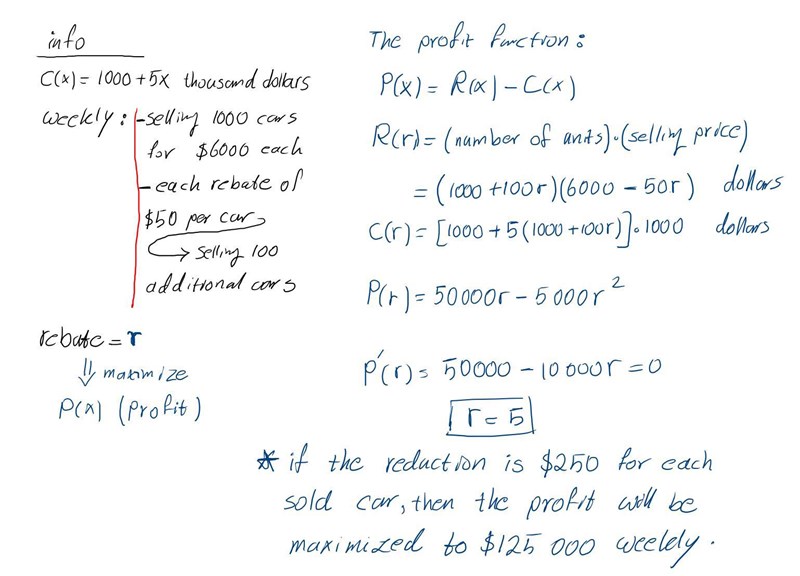 info
C(x) = 1000 + 5x thousand dollars
weekly: - selling 1000 cars
for $6000 each
- each rebate of
$50 per car
↪ selling 100
additional cars
rebate = r
⇓ maximize
P(x) (Profit)
The profit function:
P(x) = R(x) - C(x)
R(r) = (number of units)·(selling price)
= (1000 + 100r)(6000 - 50r) dollars
C(r) = [1000 + 5(1000 + 100r)]·1000 dollars
P(r) = 50000r - 5000r²
P'(r) = 50000 - 10000r = 0
r = 5
* if the reduction is $250 for each
sold car, then the profit will be
maximized to $125 000 weekly.